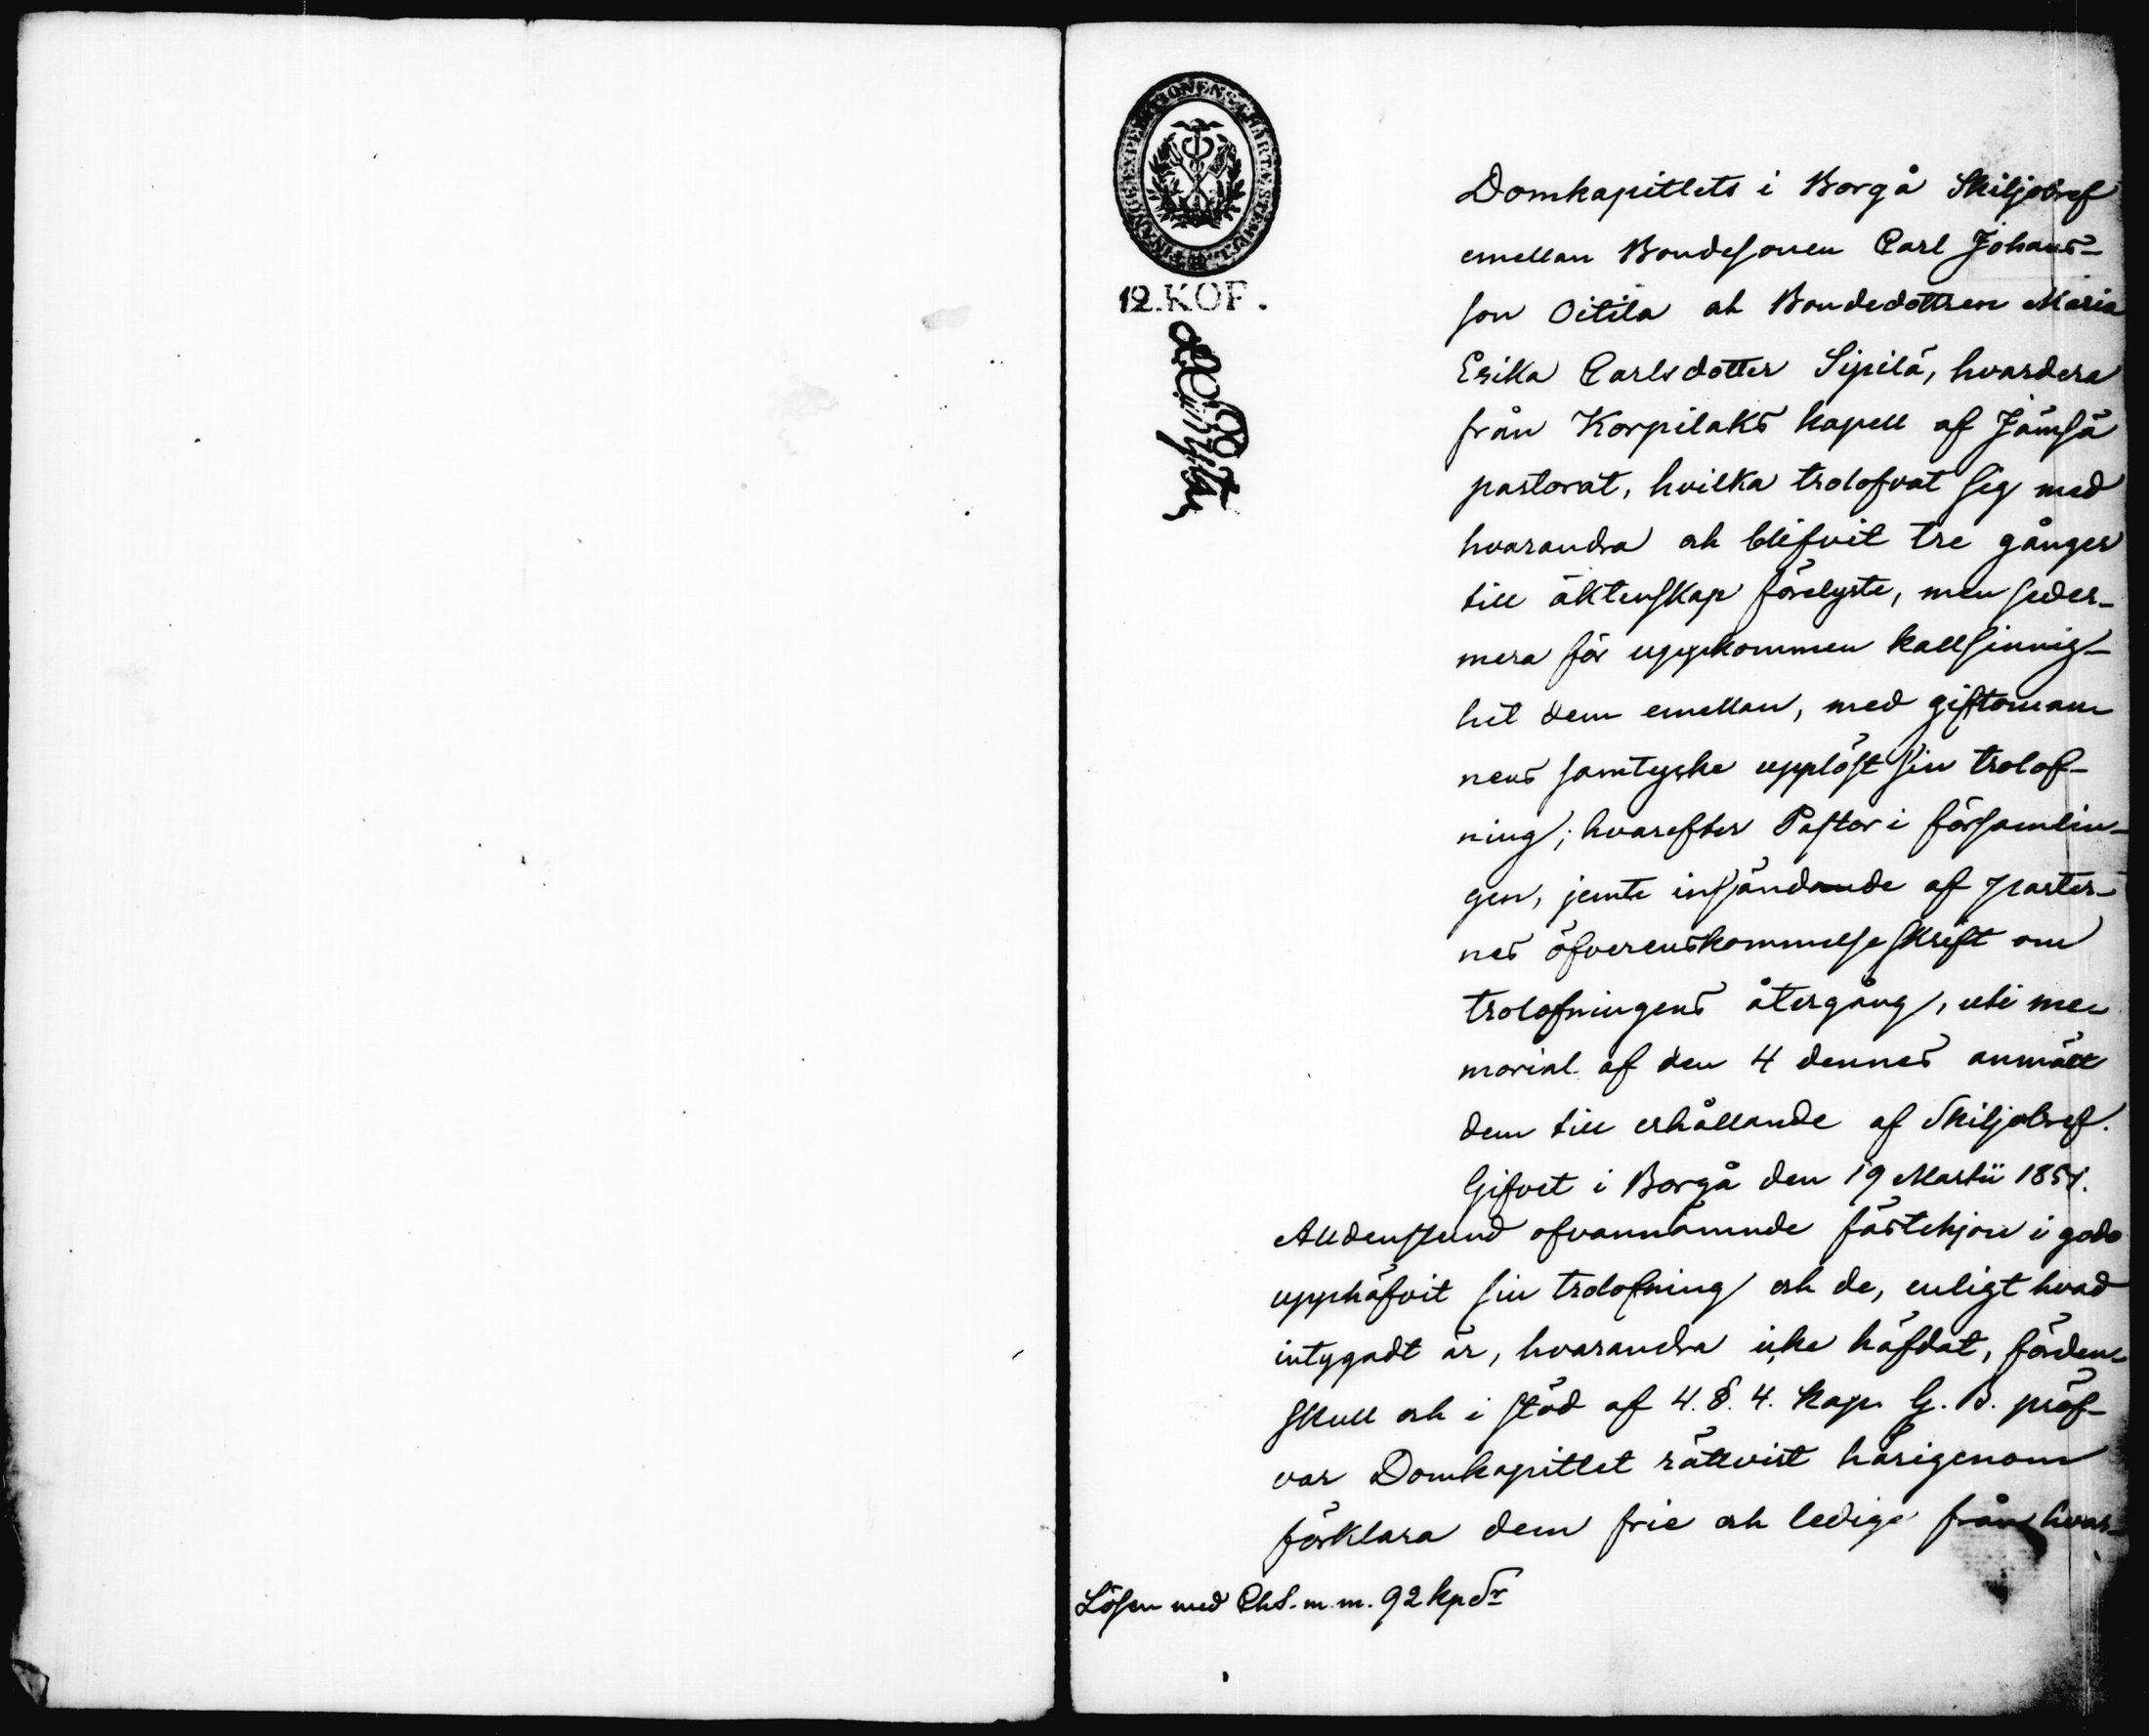 FINANCE EXPEDITIONENS CHARTÆ STEMPEL
12.KOP.
Domkapitlets i Borgå Skiljobref
emellan Bondesonen Carl Johans-
son Oitila och Bondedottren Maria
Erika Carlsdotter Sipilä, hvardera
från Korpilaks kapell af Jämsä
pastorat, hvilka trolofvat sig med
hvarandra och blifvit tre gånger
till äktenskap förelyste, men seder-
mera för uppkommen kallsinnig-
het dem emellan, med giftoman
nens samtycke upplöst sin trolof-
ning; hvarefter Pastor i församlin-
gen, jemte insändande af parter-
nes öfverenskommelse skrift om
trolofningens återgång, uti me-
morial af den 4 dennes anmält
dem till erhållande af Skiljobref.
Gifvet i Borgå den 19 Martii 1851.
Alldenstund ofvannämnde fästehjon i godo
upphäfvit sin trolofning och de, enligt hvad
intygadt är, hvarandra icke häfdat, förden-
skull och i stöd af 4. §. 4. Kap. G. B. pröf-
var Domkapitlet rättvist härigenom
förklara dem frie och ledige från hvar-
Lösen med Ch S. m. m. 92 kp Sr